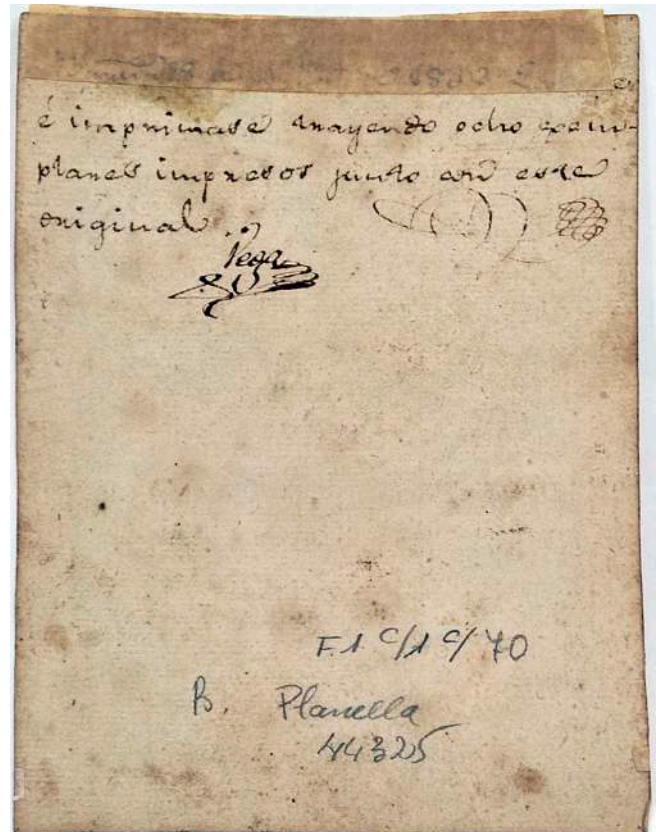 é imprimase trayendo ocho exem-
plares impresos junto con este
original.
Vega
F.1 C/1 C/ 70
B. Planella
44325